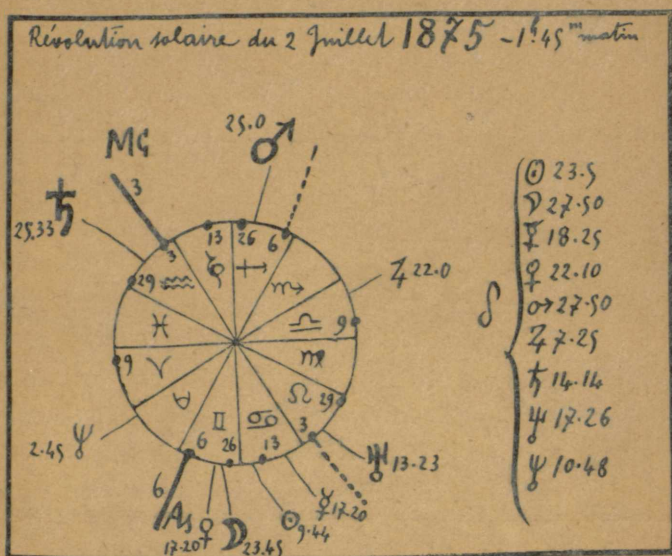 Révolution solaire du 2 Juillet 1875 - 1h.45m matin
25.0 ♂
MC
3
♄ 25.33
3
13
26
6
29
♒
♑
♐
♏
♃ 22.0
♓
♎
9
9
♈
♍
♉
♌
29
♊
♋
3
2.45 ♆
6
26
13
♅ 13.23
6
As
♀ 17.20
☽ 23.45
☉ 9.44
☿ 17.20
δ
☉ 23.5
☽ 27.50
☿ 18.25
♀ 22.10
♂ 27.50
♃ 7.25
♄ 14.14
♆ 17.26
♆ 10.48